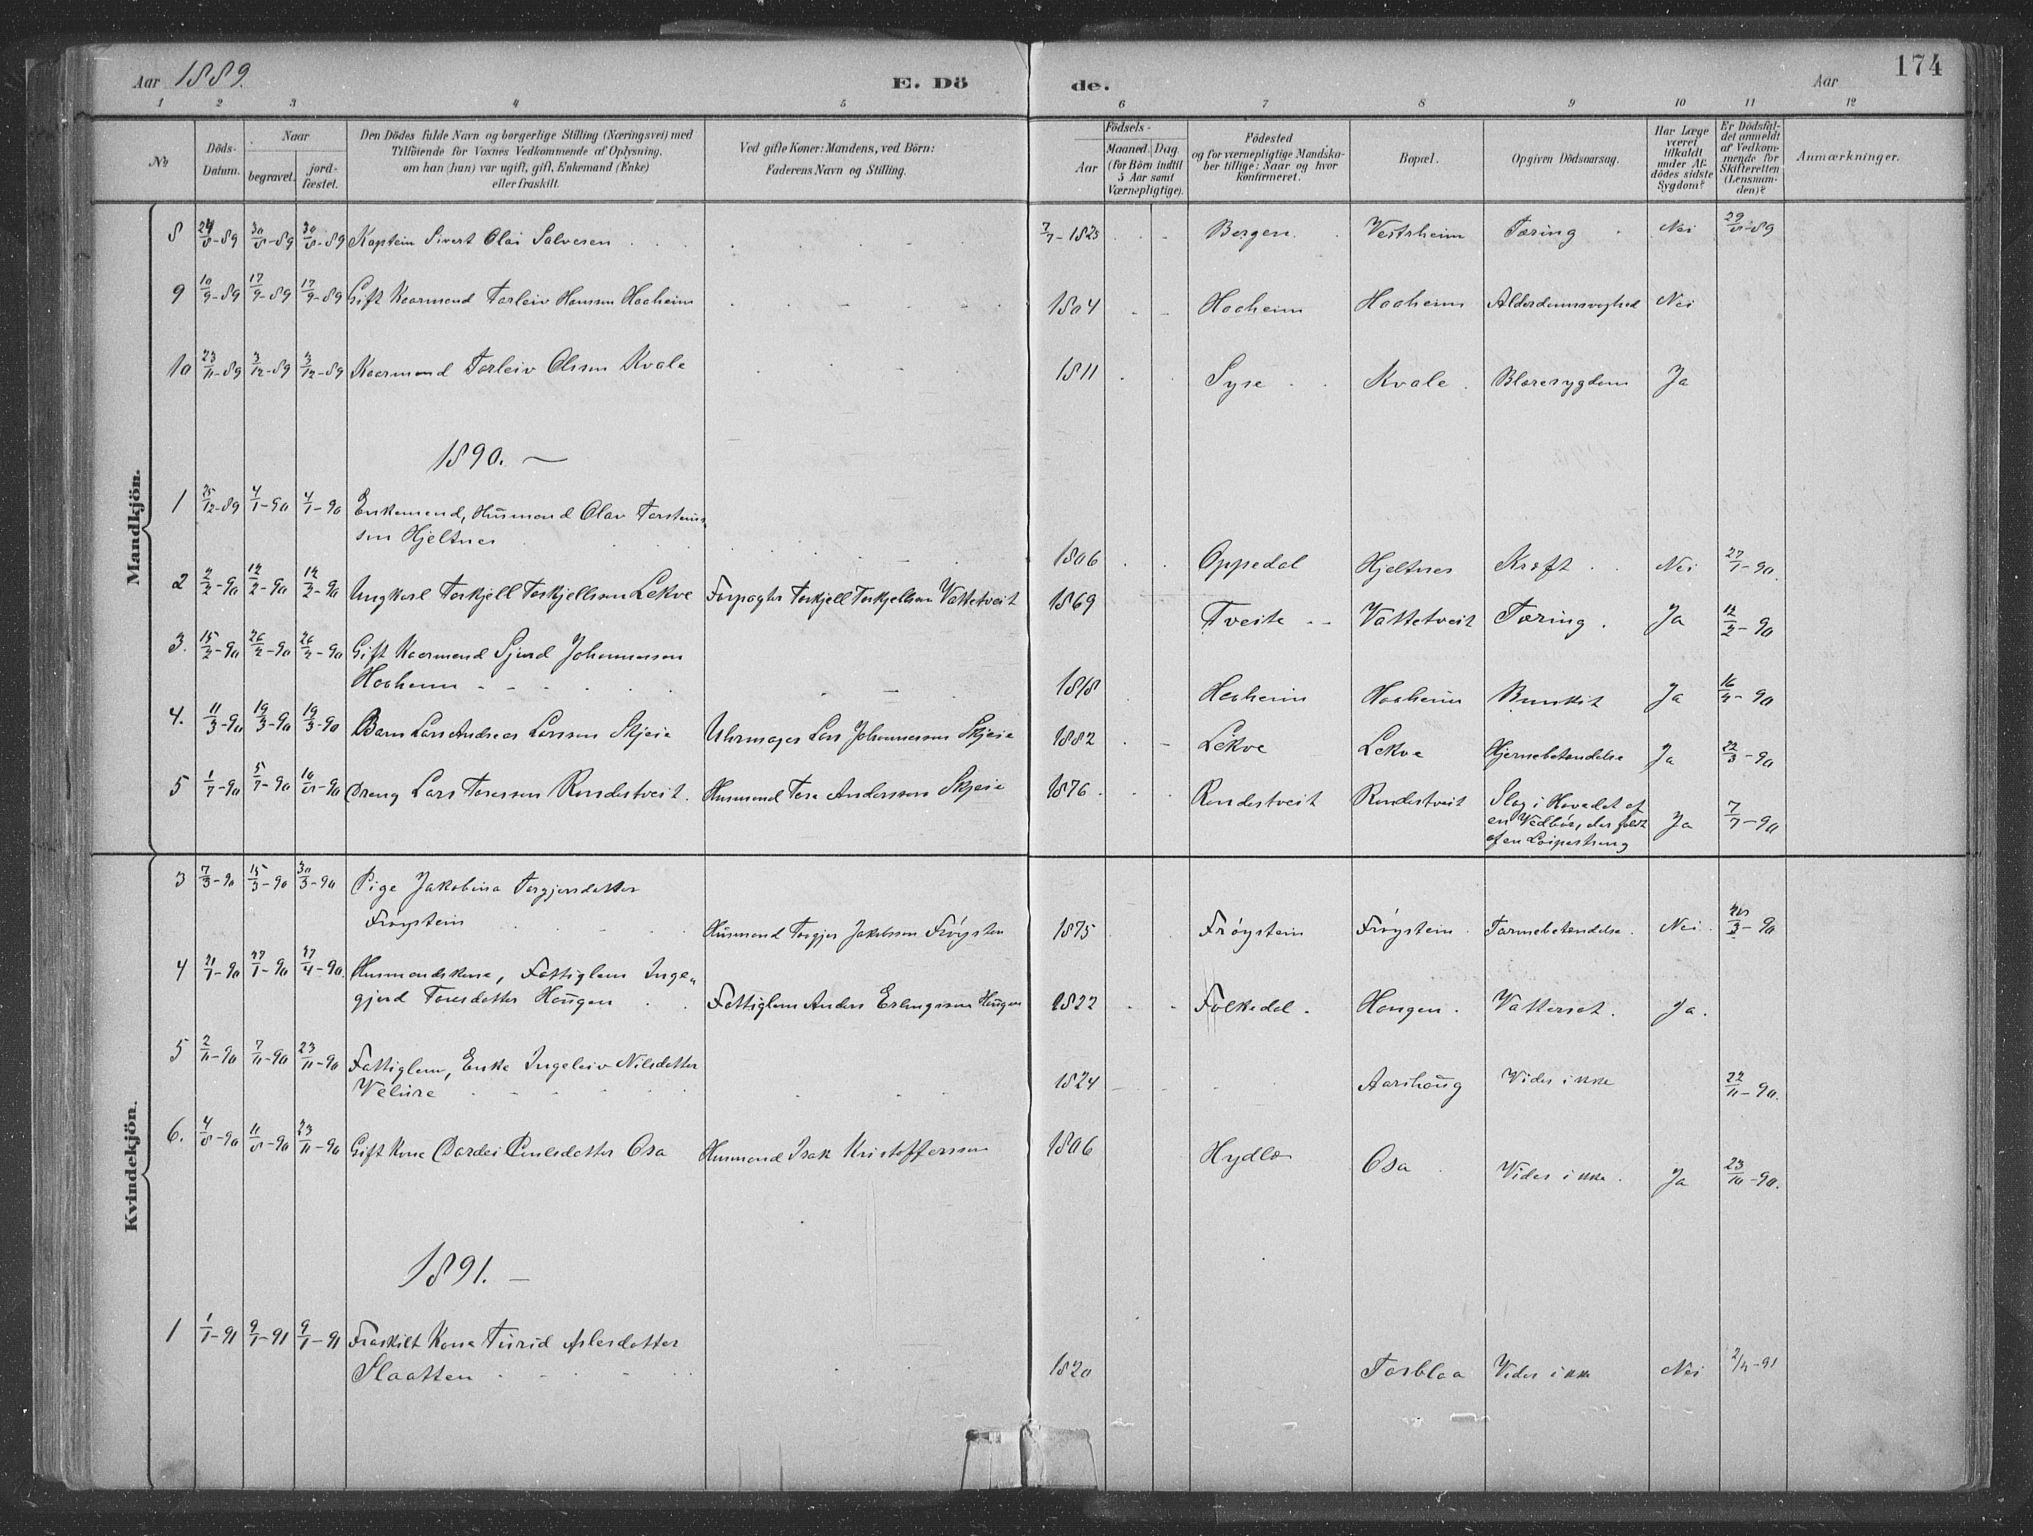 Aar 1889. E. Dö de. Aar 174
1 2 3 4 5 6 7 8 9 10 11 12
№
Döds-
Datum.
Naar
begravet.
jord-
fæstet.
Den Dödes fulde Navn og borgerlige Stilling (Næringsvei) med
Tilföiende for Voxnes Vedkommende af Oplysning,
om han (hun) var ugift, gift, Enkemand (Enke)
eller fraskilt.
Ved gifte Koner: Mandens, ved Börn:
Faderens Navn og Stilling.
Födsels-
Aar
Maaned. Dag
(for Börn indtil
5 Aar samt
Værnepligtige).
Födested
og for værnepligtige Mandska-
ber tillige: Naar og hvor
konfirmeret.
Bopæl.
Opgiven Dödsaarsag.
Har Læge
været
tilkaldt
under Af-
dödes sidste
Sygdom?
Er Dödsfal-
det anmeldt
af Vedkom-
mende for
Skifteretten
(Lensman-
den)?
Anmærkninger.
Mandkjön.
8 24/8-89 30/8-89 30/8-89 Kaptein Sivert Olai Salvesen 7/7-1823 Bergen. Vestrheim Tæring Nei 29/8-89
9 10/9-89 17/9-89 17/9-89 Gift Kaarmand Torleiv Hanssen Haaheim 1804 Haaheim Haaheim Alderdomssvaghed Nei
10 23/11-89 3/12-89 3/12-89 Kaarmand Torleiv Olssen Kvale 1811 Syse Kvale Blæresygdom Ja
1890.
1 25/12-89 4/1-90 4/1-90 Enkemand, Husmand Olav Torsteins-
sen Hjeltnes 1806 Oppedal Hjeltnes Kræft Nei 27/1-90.
2 2/2-90 12/2-90 12/2-90 Ungkarl Torkjell Torkjellsen Lekve Forpagter Torkjell Torkjellsen Vattetveit 1869 Tveite Vattetveit Tæring. Ja 12/2-90
3. 15/2-90 26/2-90 26/2-90 Gift Kaarmand Sjurd Johannessen
Haaheim 1818 Haaheim Haaheim Ja 16/4-90
4. 11/3-90 19/3-90 19/3-90 Barn Lars Andreas Larssen Skjeie Uhrmager Lars Johannessen Skjeie 1882 Lekve Lekve Hjernebetændelse Ja 22/3-90
5 1/7-90 5/7-90 10/8-90 Dreng Lars Toressen Rondestveit. Husmand Tore Anderssen Skjeie 1876 Rondestveit Rondestveit Slag i Hovedet af
en Vedbör, der faldt
af en Löipestreng Ja 7/7-90
Kvindekjön.
3 7/3-90 15/3-90 30/3-90 Pige Jakobina Torgjersdotter
Fröystein Husmand Torgjer Jakobssen Fröystein 1875 Fröystein Fröystein. Tarmebetændelse. Nei
4 21/1-90 27/1-90 27/4-90 Husmandskone, Fattiglem Inge-
gjerd Toresdotter Haugen Fattiglem Anders Erlingssen Haugen 1822 Folkedal. Haugen. Vattersot. Ja.
5 2/11-90 7/11-90 23/11-90 Fattiglem, Enke Ingeleiv Nilsdotter
Velure 1824 Aarshaug Vides ikke 22/11-90.
6. 4/8-90 11/8-90 23/11-90 Gift Kone Bardei Poulsdotter Osa Husmand Isak Kristofferssen 1806 Hydle Osa Vides ikke. Ja 23/10-90.
1891.
1 1/1-91 9/1-91 9/1-91 Fraskilt Kone Turid Aslesdotter
Slaatten 1820 Torblaa Vides ikke Nei 2/4-91